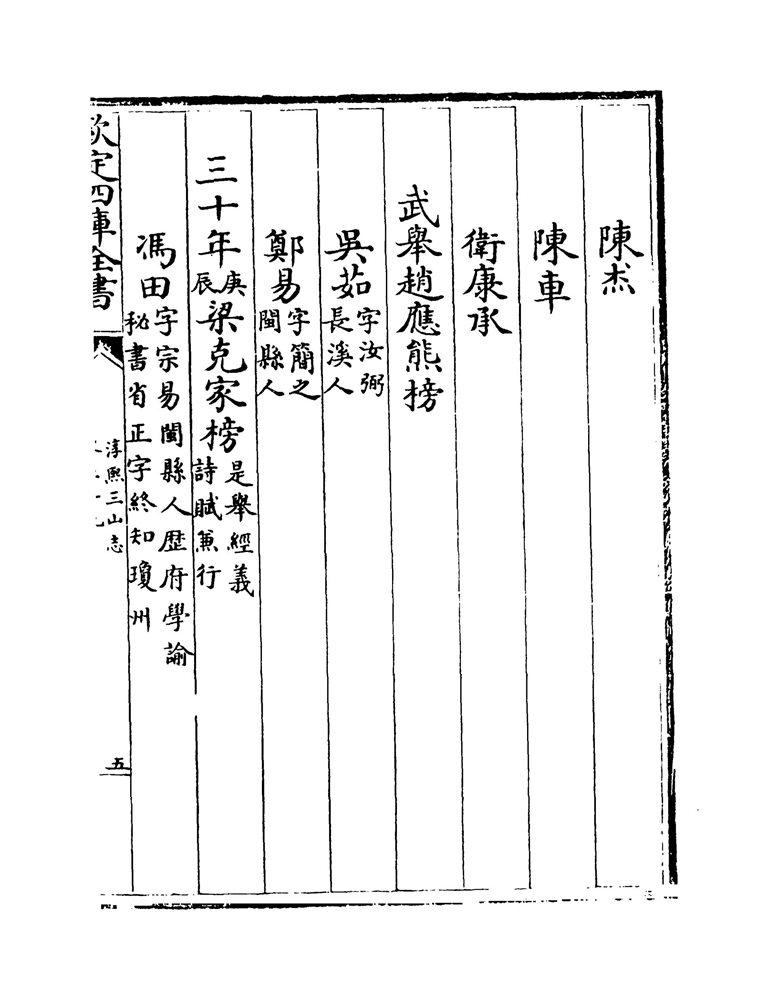 陳杰
陳車
衛康承
武舉趙應熊榜
吳茹字汝弼
長溪人
鄭昜字簡之
閩縣人
三十年庚辰梁克家榜是舉經義
詩賦兼行
馮田字宗易閩縣人歴府學諭
秘書省正字終知瓊州
欽定四庫全書
淳熙三山志
五